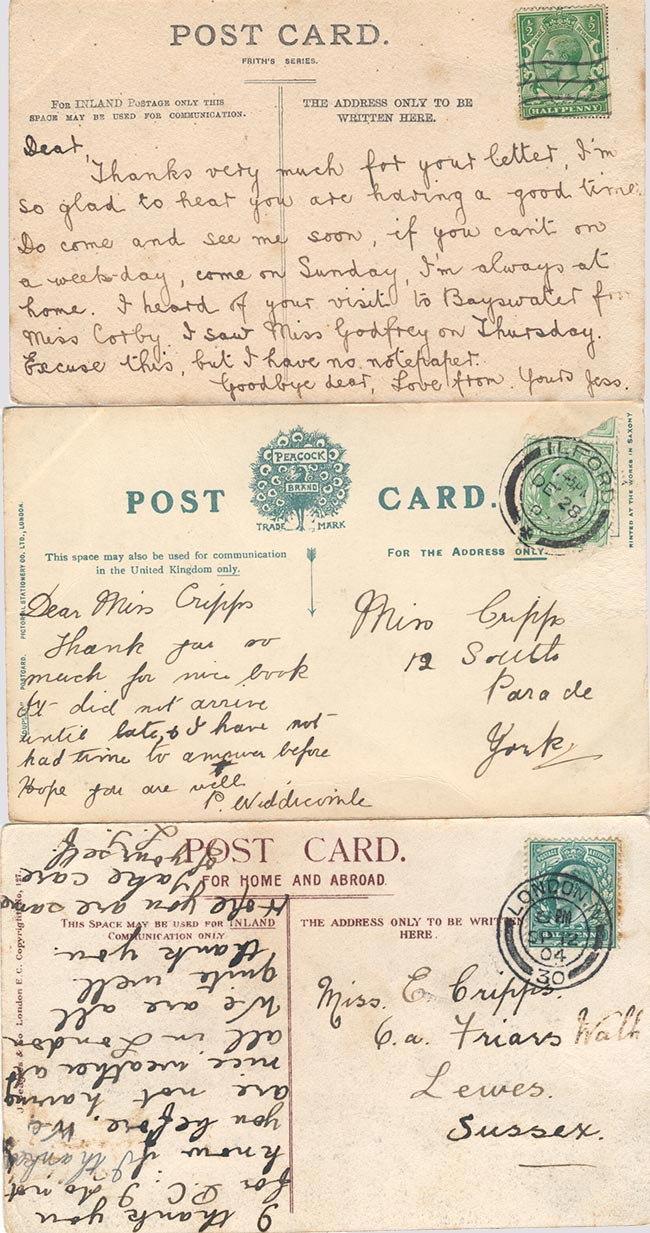 POST CARD.
FRITH'S SERIES.
½ ½
HALFPENNY
FOR INLAND POSTAGE ONLY THIS
SPACE MAY BE USED FOR COMMUNICATION.
THE ADDRESS ONLY TO BE
WRITTEN HERE.
Dear,
Thanks very much for your letter, I'm
so glad to hear you are having a good time.
Do come and see me soon, if you can't on
a week-day, come on Sunday, I'm always at
home. I heard of your visit to Bayswater from
Miss Corby. I saw Miss Godfrey on Thursday.
Excuse this, but I have no notepaper.
Goodbye dear, Love from Yours Jess.
PEACOCK
BRAND
TRADE MARK
POST CARD.
ILFORD
DE 28
PRINTED AT THE WORKS IN SAXONY
PICTORIAL STATIONERY CO. LTD., LONDON.
POSTCARD.
This space may also be used for communication
in the United Kingdom only.
FOR THE ADDRESS ONLY
Dear Miss Cripps
Thank you so
much for nice book
It did not arrive
until late, & I have not
had time to answer before
Hope you are well
P. Widdicombe
Miss Cripps
12 South
Parade
York
POST CARD.
FOR HOME AND ABROAD.
THIS SPACE MAY BE USED FOR INLAND
COMMUNICATION ONLY
THE ADDRESS ONLY TO BE WRITTEN
HERE.
POSTAGE
LONDON. N.
PM
SP 12
04
30
London E.C. Copyright
I thank you
for P.C. I do not
know if I thanked
you before. We
are not having
nice weather at
all in London
We are all
quite well
thank you.
Hope you are same
Take care
of yourself.
Miss. E. Cripps.
6.a. Friars Walk
Lewes.
Sussex.